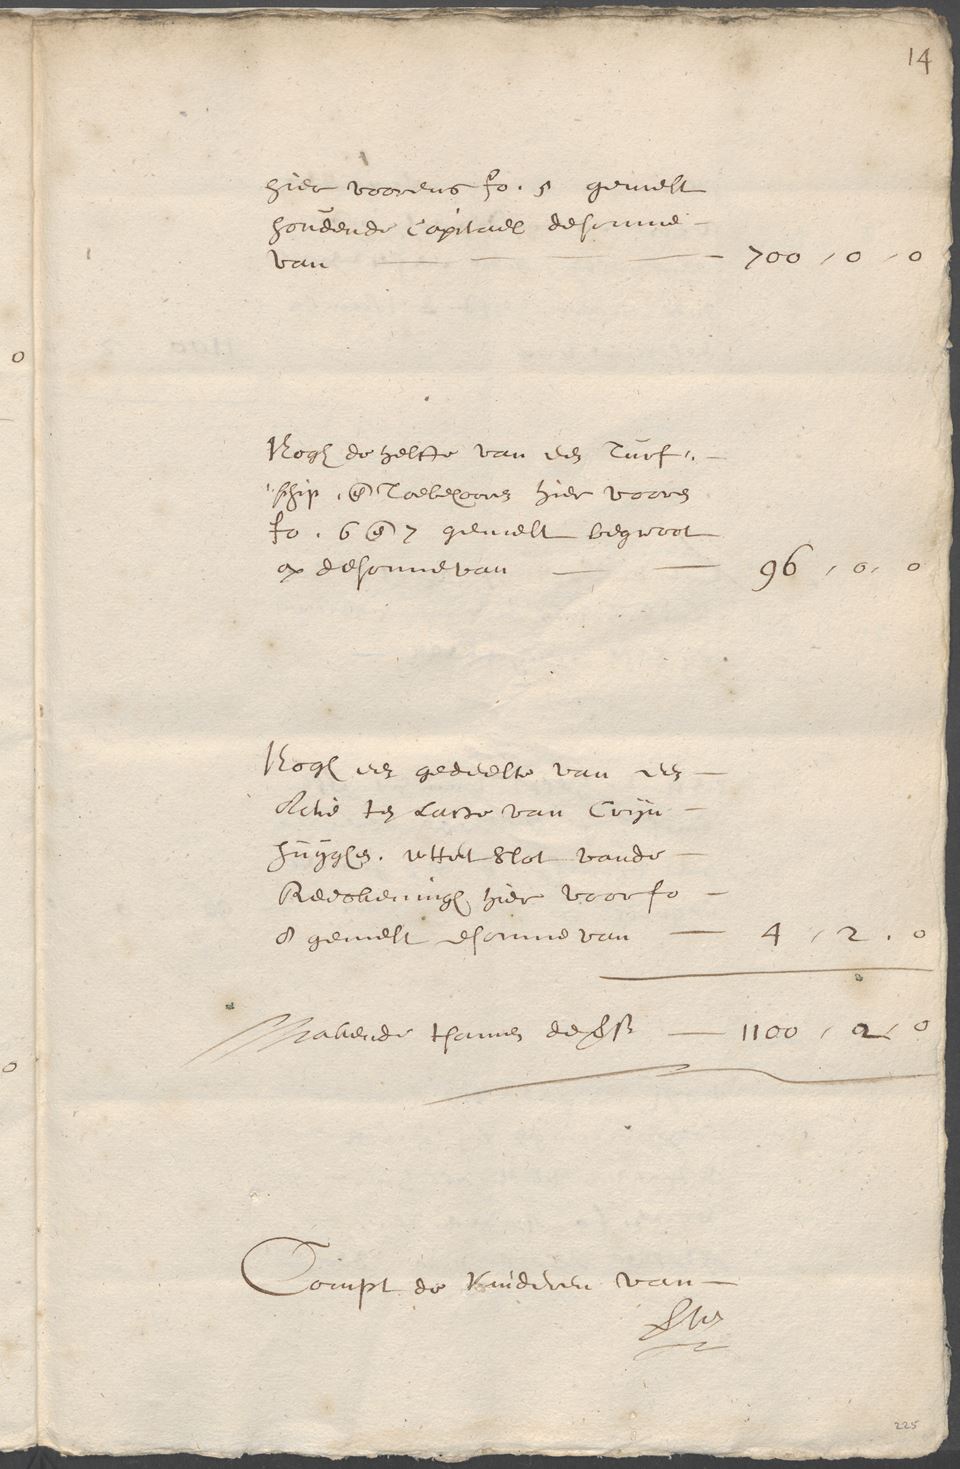 14
hier voorens fo. 5 gemelt
houdende Capitael de somme
van 700 , 0 , 0
0
Noch de helfte van een Turf
schip , en Toebehooren hier vooren
fo. 6 en 7 gemelt begroot
op de somme van 96 , 0 , 0
Noch een gedeelte van een
Actie ten Laste van Crijn
huijgen. uut het Slot vande
Reeckeningh hier voor fo
8 gemelt de somme van 4 , 2 , 0
Makende tsamen 1100 , 2 , 0
0
Compt de kinderen van
225